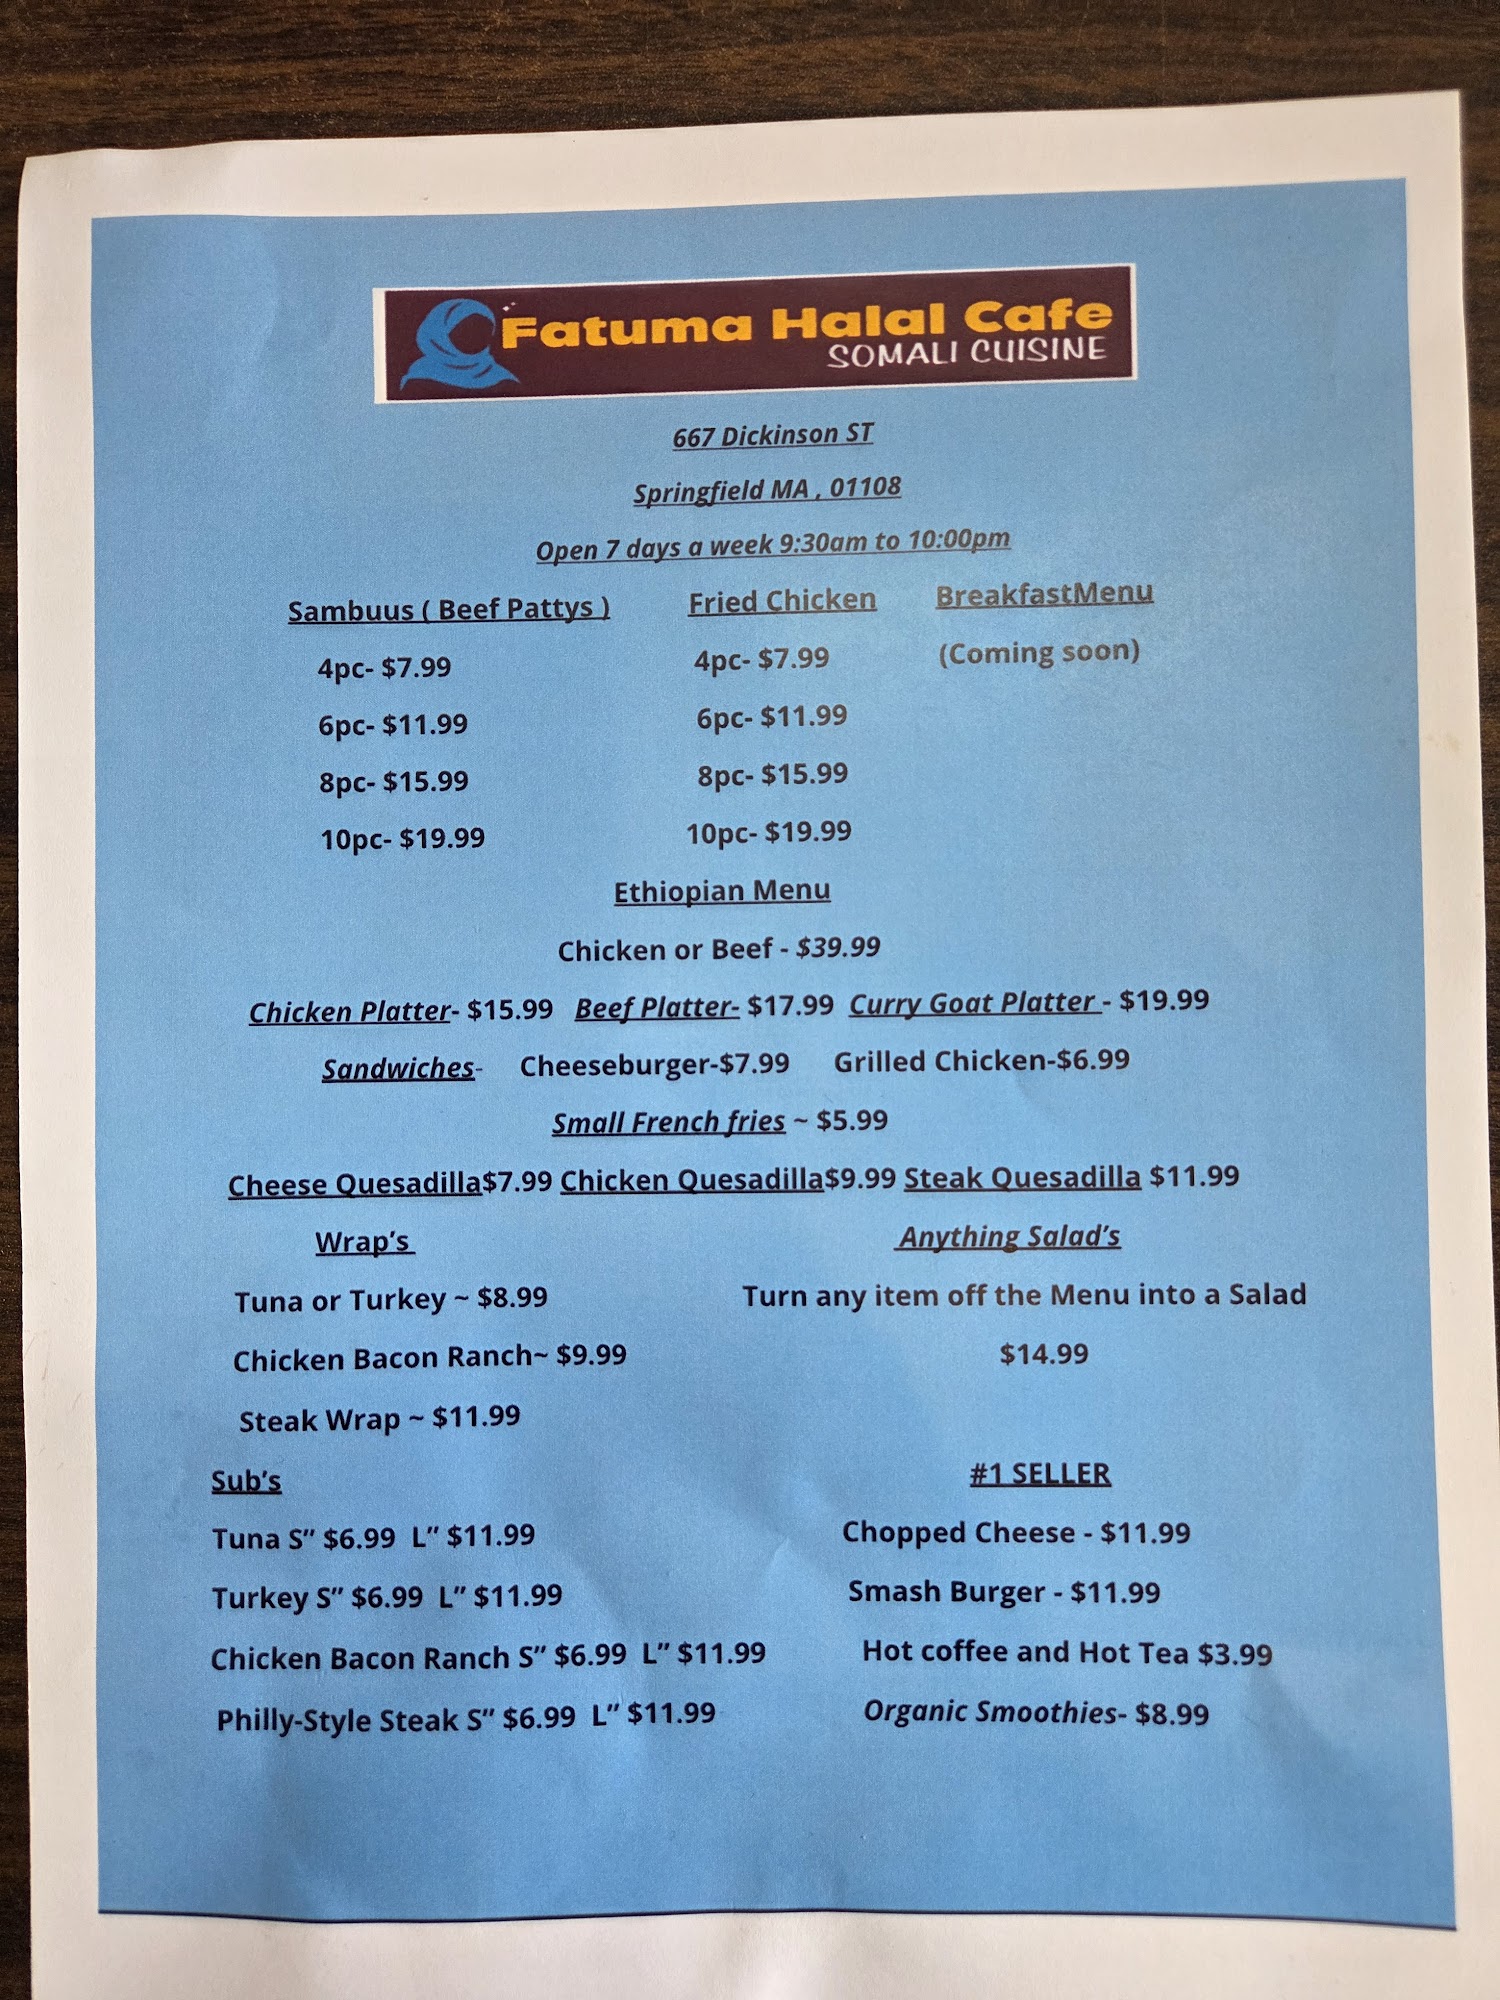 Fatuma Halal Cafe
SOMALI CUISINE
667 Dickinson ST
Springfield MA , 01108
Open 7 days a week 9:30am to 10:00pm
Sambuus ( Beef Pattys ) Fried Chicken BreakfastMenu
4pc- $7.99 4pc- $7.99 (Coming soon)
6pc- $11.99 6pc- $11.99
8pc- $15.99 8pc- $15.99
10pc- $19.99 10pc- $19.99
Ethiopian Menu
Chicken or Beef - $39.99
Chicken Platter- $15.99 Beef Platter- $17.99 Curry Goat Platter - $19.99
Sandwiches- Cheeseburger-$7.99 Grilled Chicken-$6.99
Small French fries ~ $5.99
Cheese Quesadilla$7.99 Chicken Quesadilla$9.99 Steak Quesadilla $11.99
Wrap's Anything Salad's
Tuna or Turkey ~ $8.99 Turn any item off the Menu into a Salad
Chicken Bacon Ranch~ $9.99 $14.99
Steak Wrap ~ $11.99
Sub's #1 SELLER
Tuna S” $6.99 L” $11.99 Chopped Cheese - $11.99
Turkey S” $6.99 L” $11.99 Smash Burger - $11.99
Chicken Bacon Ranch S” $6.99 L” $11.99 Hot coffee and Hot Tea $3.99
Philly-Style Steak S” $6.99 L” $11.99 Organic Smoothies- $8.99